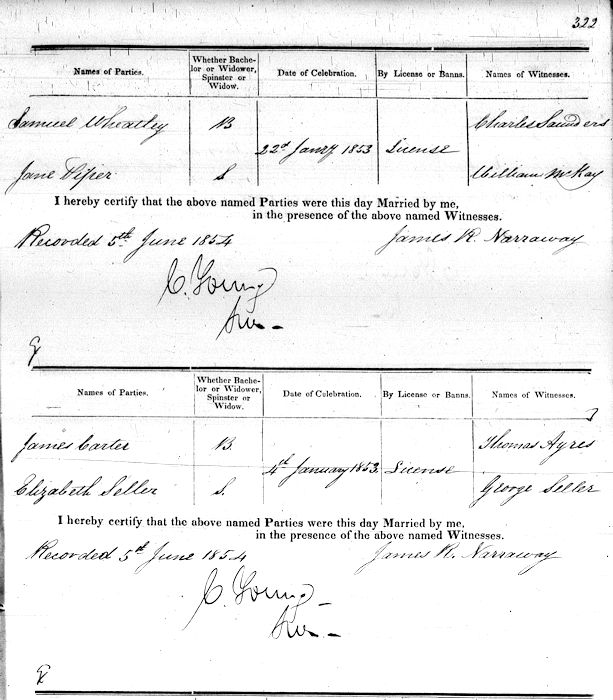 322
Names of Parties. Whether Bache-lor or Widower, Spinster or Widow. Date of Celebration. By License or Banns. Names of Witnesses.
Samuel Wheatley B Charles Saunders
22d Jany 1853 License
Jane Piper S William McKay
I hereby certify that the above named Parties were this day Married by me,
in the presence of the above named Witnesses.
Recorded 5th June 1854 James R. Narraway
C. Young
Names of Parties. Whether Bache-lor or Widower, Spinster or Widow. Date of Celebration. By License or Banns. Names of Witnesses.
James Carter B. Thomas Ayres
4th January 1853. License
Elizabeth Seller S. George Seller
I hereby certify that the above named Parties were this day Married by me,
in the presence of the above named Witnesses.
Recorded 5th June 1854 James R. Narraway
C. Young